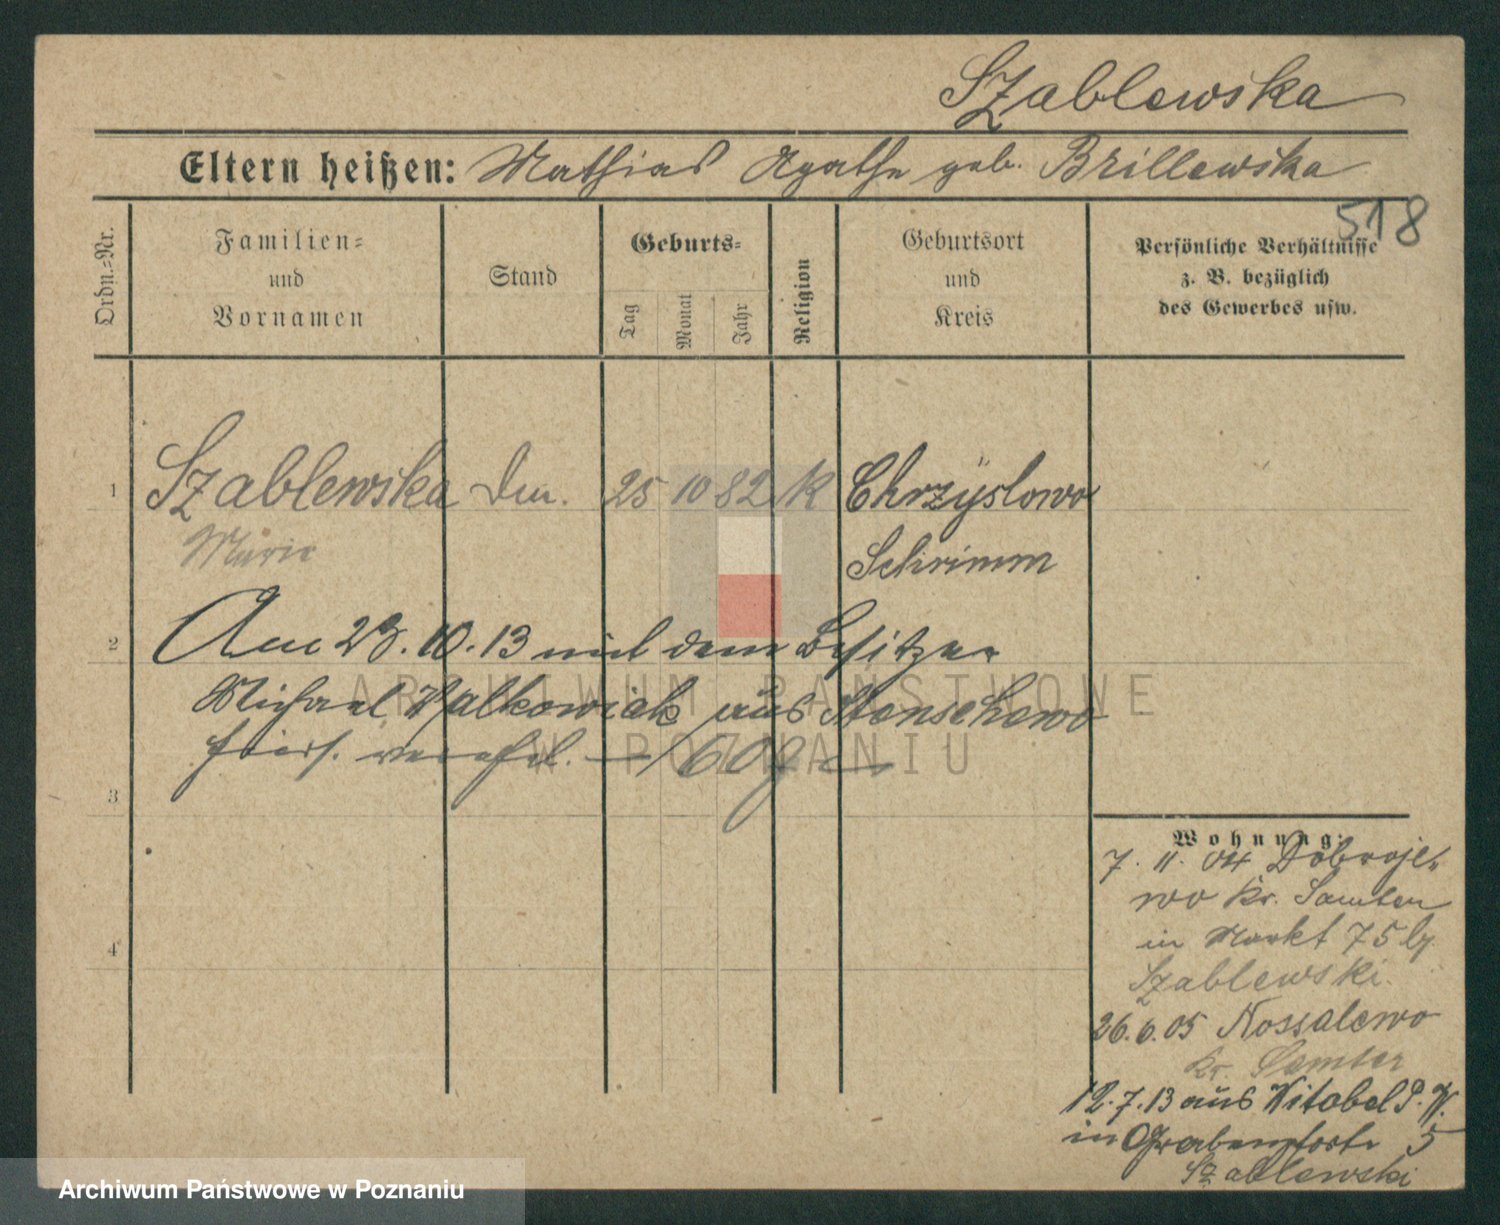 Szablewska
Eltern heißen: Mathias Agathe geb. Brillewska
518
Ordn.-Nr.
Familien- und Vornamen
Stand
Geburts-
Tag
Monat
Jahr
Religion
Geburtsort und Kreis
Persönliche Verhältnisse
z. B. bezüglich
des Gewerbes usw.
1 Szablewska 25 10 82 K Chrzyslowo
Marie Schrimm
2 Am 23.10.13 mit dem Besitzer
Michael Walkowiak aus Stenschewo
hiers. verehel.
3
4
Wohnung:
7. 11. 04 Dobrojewo
wo Kr. Samter
in Markt 75 by
Szablewski
26.6.05 Kossalewo
Kr. Samter
12.7.13 aus Witobel P. W.
in Grabenpforte 5
Szablewski
ARCHIWUM PAŃSTWOWE
W POZNANIU
Archiwum Państwowe w Poznaniu